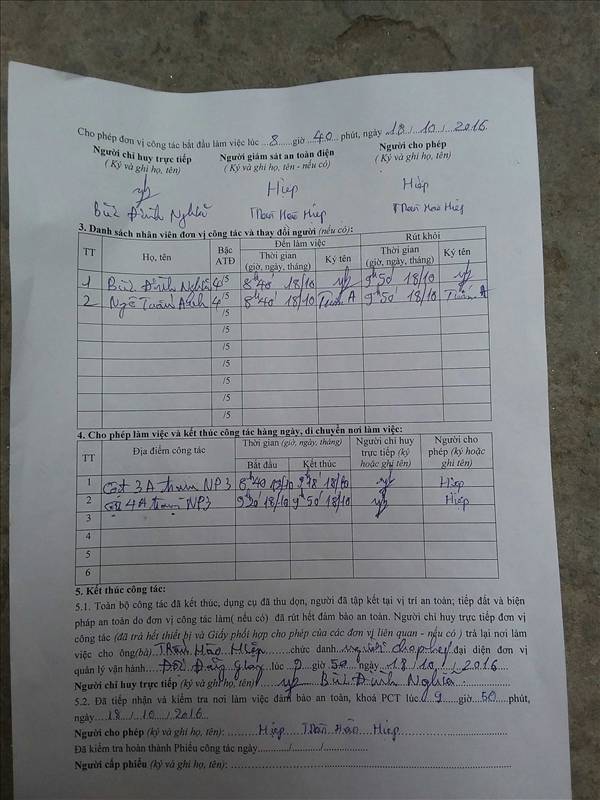 Cho phép đơn vị công tác bắt đầu làm việc lúc ...8......giờ ...40... phút, ngày 18 / 10 / 2016.
Người chỉ huy trực tiếp Người giám sát an toàn điện Người cho phép
( Ký và ghi họ, tên) ( Ký và ghi họ, tên - nếu có) ( Ký và ghi họ, tên)
Hiệp Hiệp
Bùi Đình Nghĩa Trần Hào Hiệp Trần Hào Hiệp
3. Danh sách nhân viên đơn vị công tác và thay đổi người (nếu có):
TT Họ, tên Bậc ATĐ Đến làm việc Rút khỏi
Thời gian (giờ, ngày, tháng) Ký tên Thời gian (giờ, ngày, tháng) Ký tên
1 Bùi Đình Nghĩa 4/5 8h40' 18/10 9h50' 18/10
2 Ngô Tuấn Anh 4/5 8h40' 18/10 Tuấn A 9h50' 18/10 Tuấn A
/5
/5
/5
/5
/5
/5
4. Cho phép làm việc và kết thúc công tác hàng ngày, di chuyển nơi làm việc:
TT Địa điểm công tác Thời gian (giờ, ngày, tháng) Người chỉ huy trực tiếp (ký hoặc ghi tên) Người cho phép (ký hoặc ghi tên)
Bắt đầu Kết thúc
1 Cột 3A trạm NP3 8h40 18/10 18/10 Hiệp
2 Cột 4A trạm NP3 18/10 9h50' 18/10 Hiệp
3
4
5
6
5. Kết thúc công tác:
5.1. Toàn bộ công tác đã kết thúc, dụng cụ đã thu dọn, người đã tập kết tại vị trí an toàn; tiếp đất và biện
pháp an toàn do đơn vị công tác làm( nếu có) đã rút hết đảm bảo an toàn. Người chỉ huy trực tiếp đơn vị
công tác (đã trả hết thiết bị và Giấy phối hợp cho phép của các đơn vị liên quan - nếu có ) trả lại nơi làm
việc cho ông(bà) Trần Hào Hiệp chức danh người cho phép đại diện đơn vị
quản lý vận hành lúc 9 giờ 50 ngày 18 / 10 / 2016
Người chỉ huy trực tiếp (ký và ghi họ, tên) Bùi Đình Nghĩa
5.2. Đã tiếp nhận và kiểm tra nơi làm việc đảm bảo an toàn, khoá PCT lúc 9 giờ 50 phút,
ngày 18 / 10 / 2016
Người cho phép (ký và ghi họ, tên): Hiệp Trần Hào Hiệp
Đã kiểm tra hoàn thành Phiếu công tác ngày............/............/................
Người cấp phiếu (ký và ghi họ, tên): ................................................